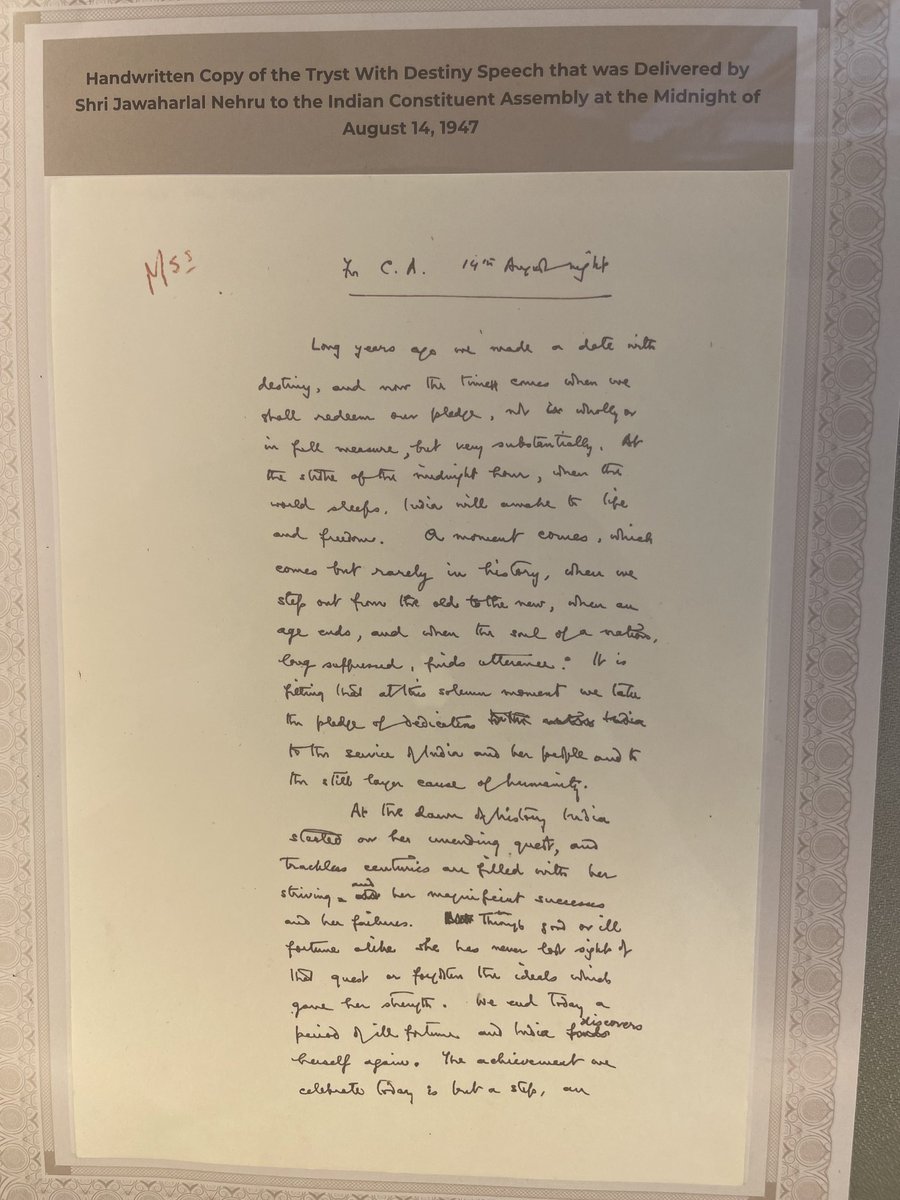 Handwritten Copy of the Tryst With Destiny Speech that was Delivered by
Shri Jawaharlal Nehru to the Indian Constituent Assembly at the Midnight of
August 14, 1947
Mss
For C. A. 14th August night
Long years ago we made a date with
destiny, and now the time comes when we
shall redeem our pledge, not wholly or
in full measure, but very substantially. At
the stroke of the midnight hour, when the
world sleeps, India will awake to life
and freedom. A moment comes, which
comes but rarely in history, when we
step out from the old to the new, when an
age ends, and when the soul of a nation,
long suppressed, finds utterance. It is
fitting that at this solemn moment we take
the pledge of dedication to the nation India
to the service of India and her people and to
the still larger cause of humanity.
At the dawn of history India
started on her unending quest, and
trackless centuries are filled with her
striving and her magnificent successes
and her failures. Through good or ill
fortune alike she has never lost sight of
that quest or forgotten the ideals which
gave her strength. We end today a
period of ill fortune and India discovers
herself again. The achievement we
celebrate today is but a step, an